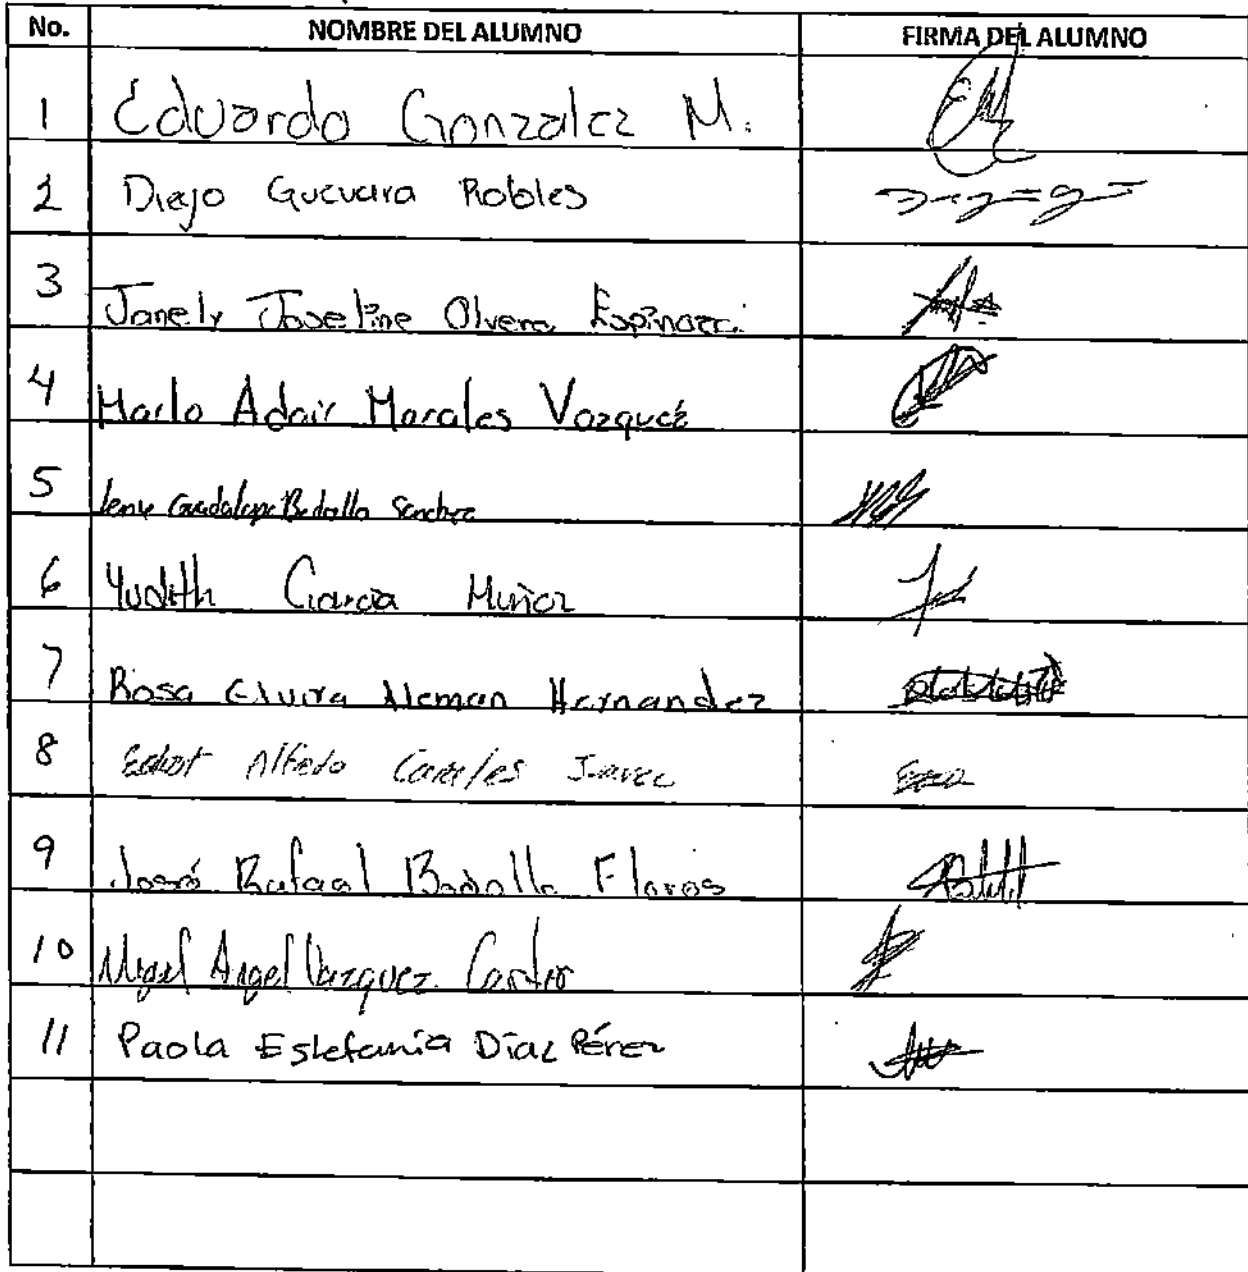 No. NOMBRE DEL ALUMNO FIRMA DEL ALUMNO
1 Eduardo Gonzalez M. EM
2 Diego Guevara Robles
3 Janely Joseline Olvera Espinoza
4 Marlo Adair Morales Vazquez
5 Guadalupe Badallo Sanchez
6 Yudith Garcia Muñoz
7 Rosa Elvira Aleman Hernandez
8 Alfredo
9 José Rafael Badallo Flores
10 Migel Angel Vazquez Castro
11 Paola Estefania Díaz Pérez